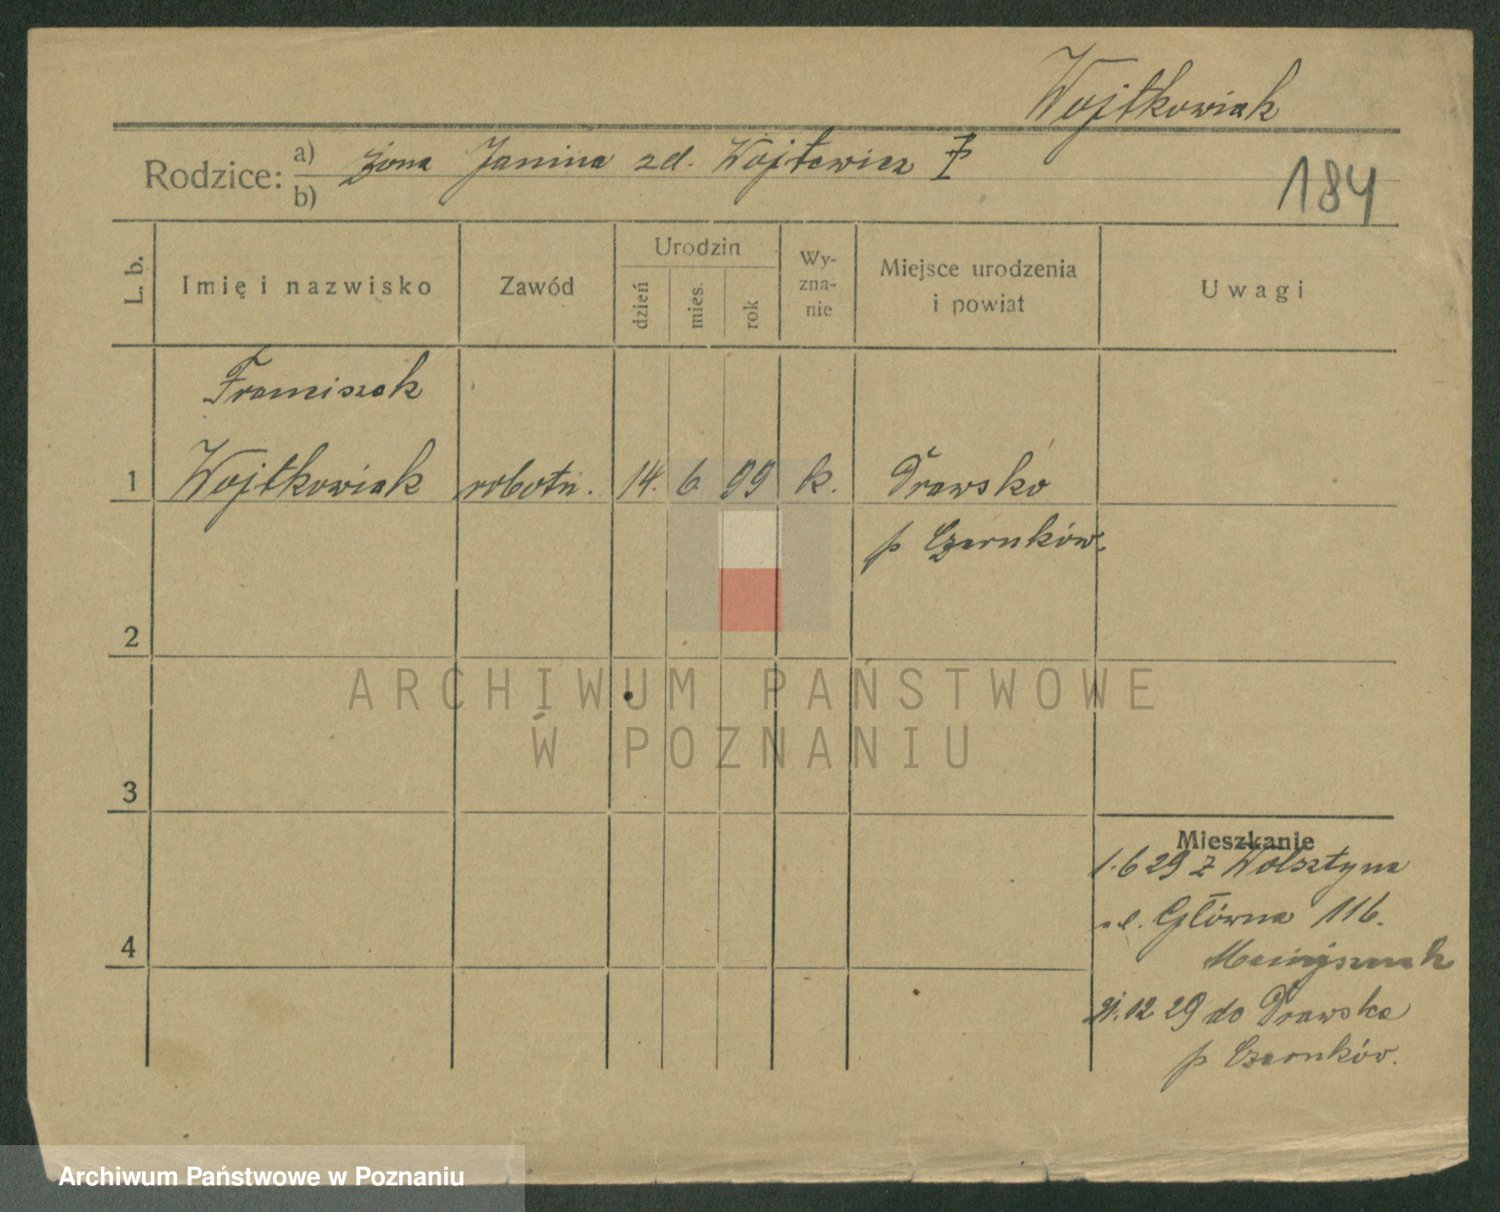 Wojtkowiak
Rodzice: a) żona Janina zd. Wojtewicz
b)
184
L. b.
Imię i nazwisko
Zawód
Urodzin
dzień
mies.
rok
Wy-
zna-
nie
Miejsce urodzenia
i powiat
Uwagi
Franciszek
1 Wojtkowiak robotn. 14. 6 99 k. Drawsko
p Czarnków.
2
ARCHIWUM PAŃSTWOWE
W POZNANIU
3
Mieszkanie
1.6 29 z Wolsztyna
ul. Główna 116.
4
21.12 29 do Drawska
p Czarnków.
Archiwum Państwowe w Poznaniu